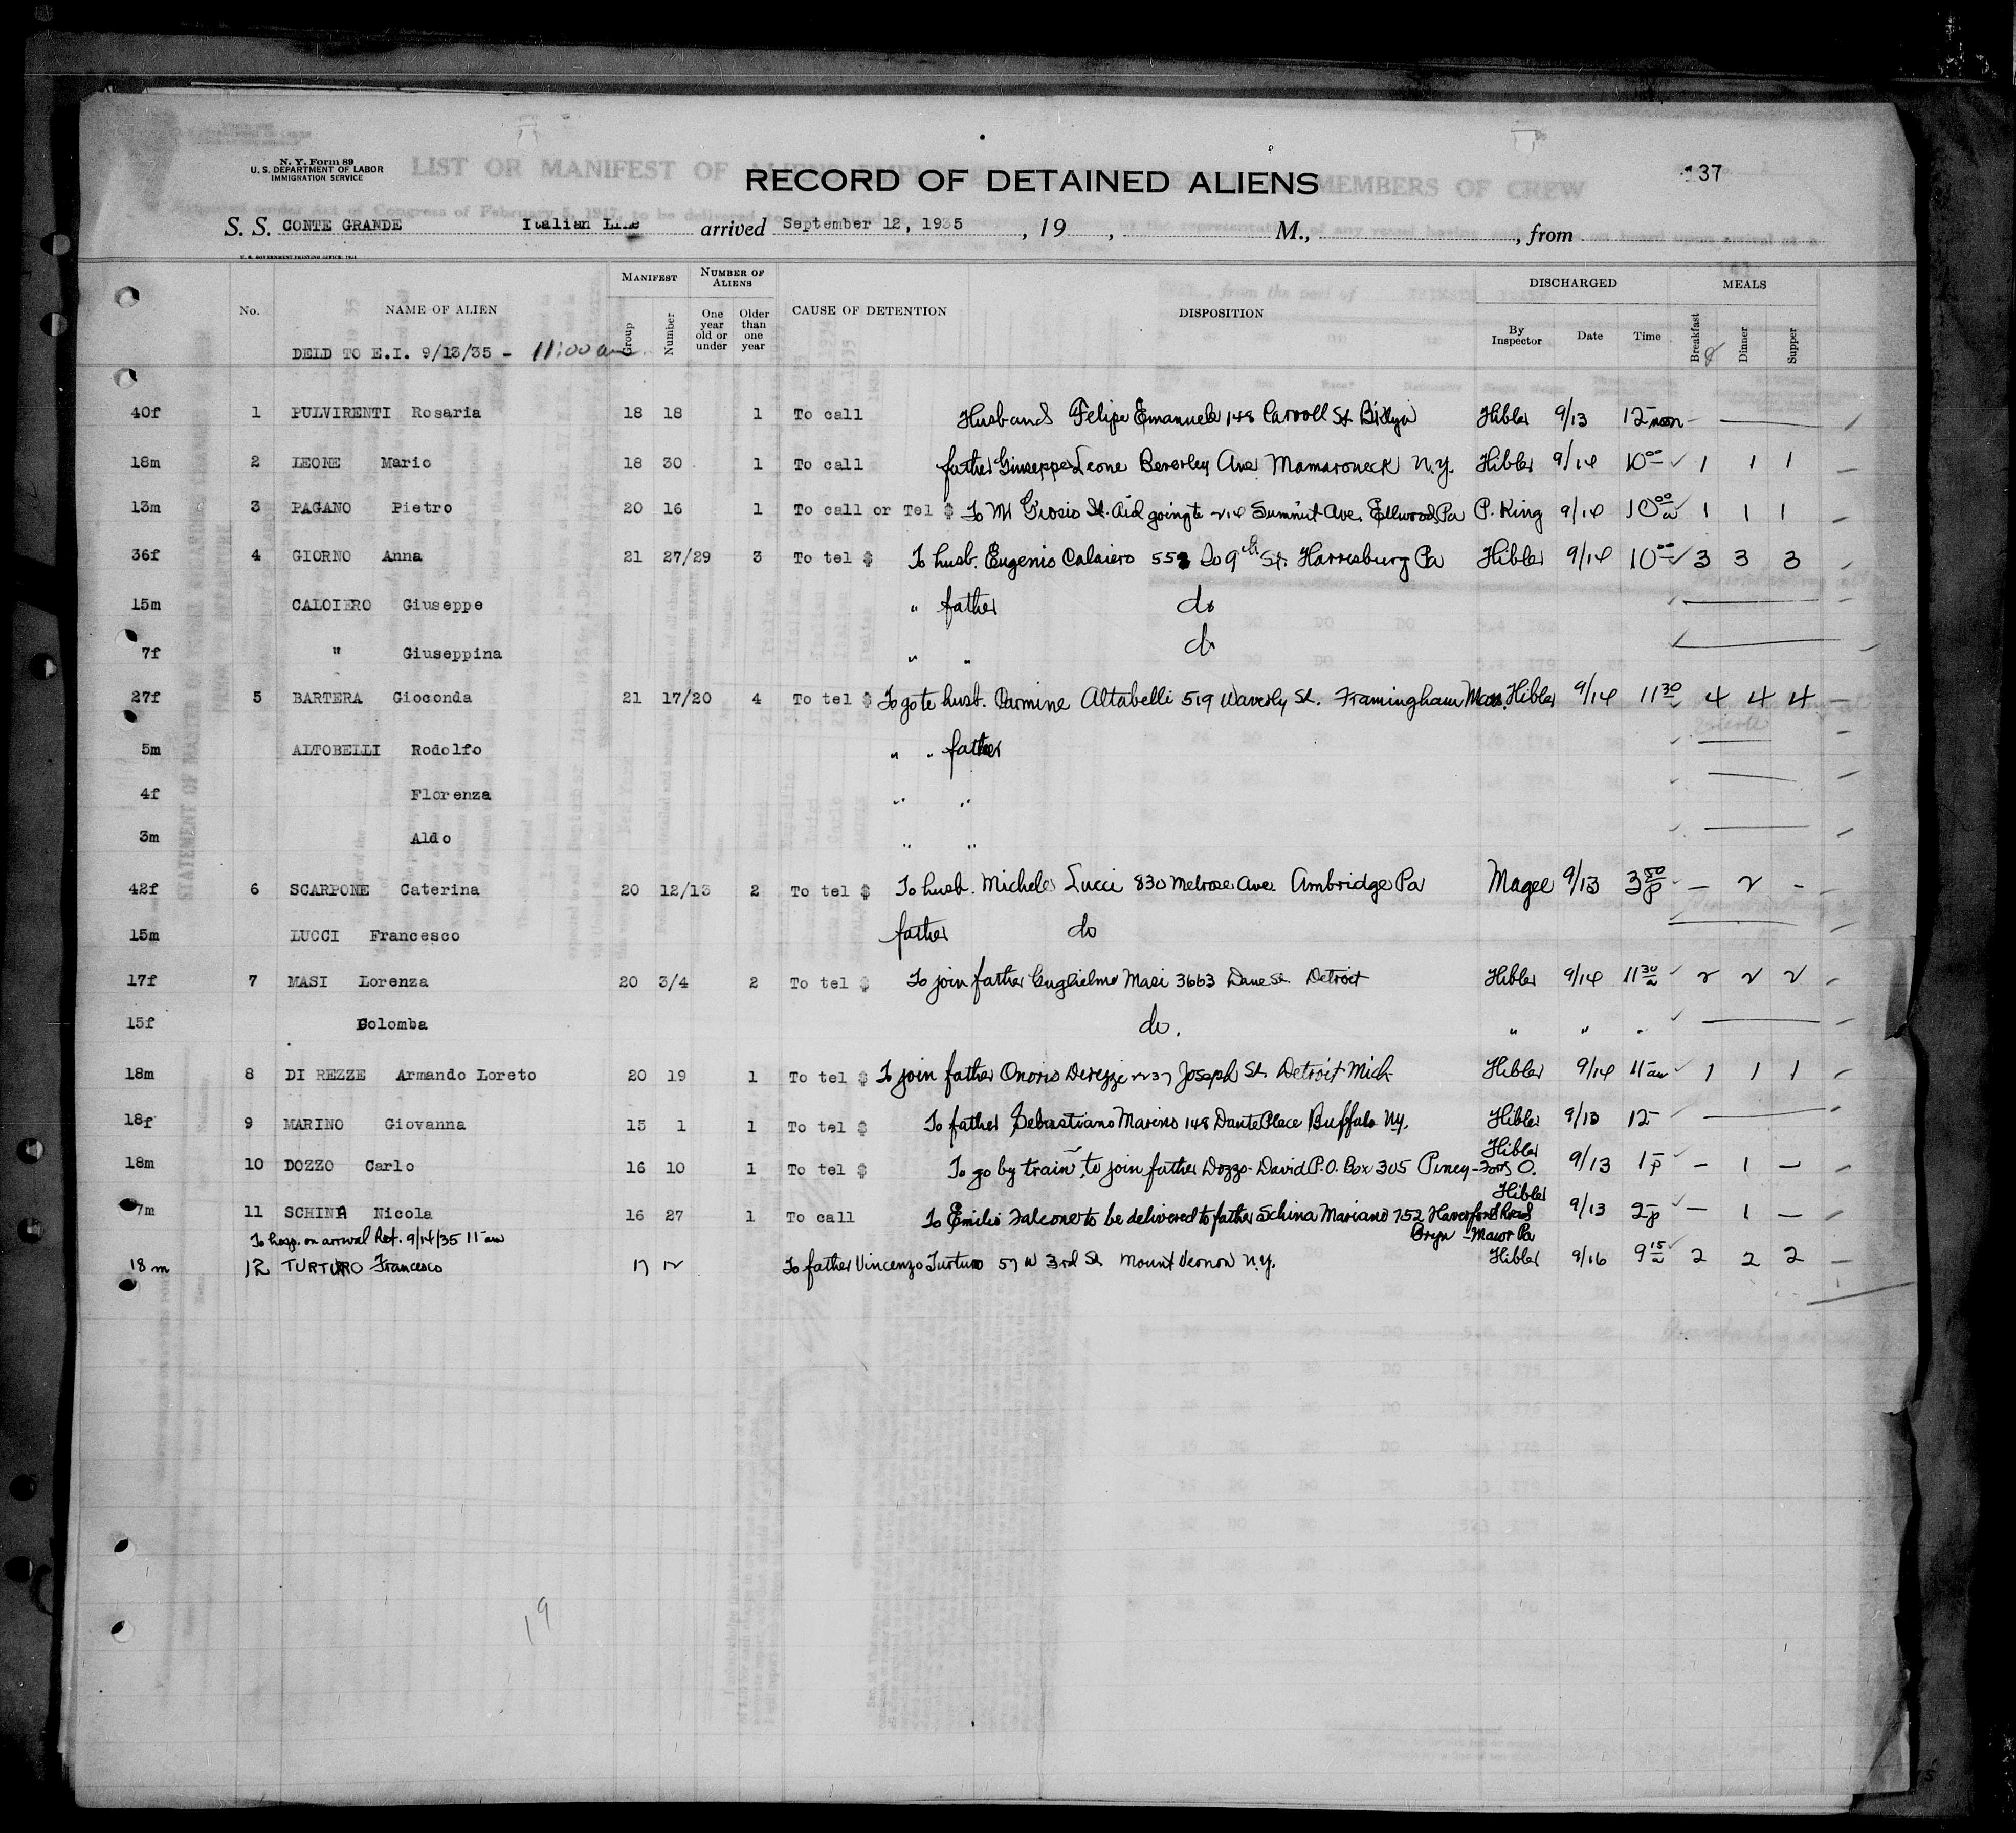 N. Y. Form 89
U. S. DEPARTMENT OF LABOR
IMMIGRATION SERVICE
LIST OR MANIFEST OF ALIENS MEMBERS OF CREW
RECORD OF DETAINED ALIENS
137
S. S. CONTE GRANDE Italian Line arrived September 12, 1935, 19 , M., , from
U. S. GOVERNMENT PRINTING OFFICE: 1934
No. NAME OF ALIEN MANIFEST NUMBER OF ALIENS CAUSE OF DETENTION DISPOSITION DISCHARGED MEALS
Group Number One year old or under Older than one year By Inspector Date Time Breakfast Dinner Supper
DELD TO E.I. 9/13/35 - 11:00 am
40f 1 PULVIRENTI Rosaria 18 18 1 To call Husband Felipe Emanuele 148 Carroll St. Bklyn Hibler 9/13 12 noon
18m 2 LEONE Mario 18 30 1 To call father Giuseppe Leone Beverley Ave Mamaroneck N.Y. Hibler 9/14 10 00 1 1 1
13m 3 PAGANO Pietro 20 16 1 To call or Tel $ To Mr Grosio It. Aid going to 214 Summit Ave. Ellwood, Pa P. King 9/14 10 00 a 1 1 1
36f 4 GIORNO Anna 21 27/29 3 To tel $ To husb. Eugenio Calaiero 552 So 9th St. Harrisburg Pa Hibler 9/14 10 00 3 3 3
15m CALOIERO Giuseppe " father do
7f " Giuseppina " " do
27f 5 BARTERA Gioconda 21 17/20 4 To tel $ To go to husb. Carmine Altabelli 519 Waverly St. Framingham Mass. Hibler 9/14 11 30 4 4 4
5m ALTOBELLI Rodolfo " " father
4f Florenza " "
3m Aldo " "
42f 6 SCARPONE Caterina 20 12/13 2 To tel $ To husb. Michele Lucci 830 Melrose Ave. Ambridge Pa Magee 9/13 3 50 p - 2 -
15m LUCCI Francesco father do
17f 7 MASI Lorenza 20 3/4 2 To tel $ To join father Guglielmo Masi 3663 Dane St. Detroit Hibler 9/14 11 30 a 2 2 2
15f Colomba do. " " "
18m 8 DI REZZE Armando Loreto 20 19 1 To tel $ To join father Onorio Derezze 2237 Joseph St. Detroit Mich Hibler 9/14 11 am 1 1 1
18f 9 MARINO Giovanna 15 1 1 To tel $ To father Sebastiano Marino 148 Dante Place Buffalo N.Y. Hibler 9/13 12
18m 10 DOZZO Carlo 16 10 1 To tel $ To go by train, to join father Dozzo-David P.O. Box 305 Piney-Fork O. Hibler 9/13 1 p - 1 -
7m 11 SCHINA Nicola 16 27 1 To call To Emilio Falcone to be delivered to father Schina Mariano 752 Haverford Road Bryn-Mawr Pa Hibler 9/13 2 p - 1 -
To hosp. on arrival Ret. 9/14/35 11 am
18 m 12 TURTURRO Francesco 17 12 To father Vincenzo Turturo 57 W 3rd St Mount Vernon N.Y. Hibler 9/16 9 15 a 2 2 2
19